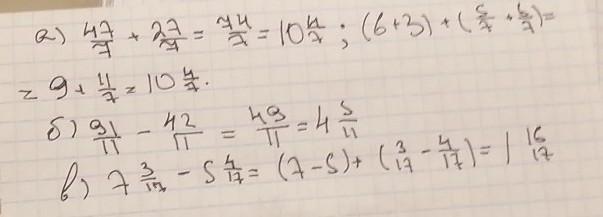 а) 47/7 + 27/7 = 74/7 = 10 4/7 ; (6+3) + (5/7 + 6/7) =
= 9 + 11/7 = 10 4/7.
б) 91/11 - 42/11 = 49/11 = 4 5/11
в) 7 3/17 - 5 4/17 = (7-5) + (3/17 - 4/17) = 1 16/17